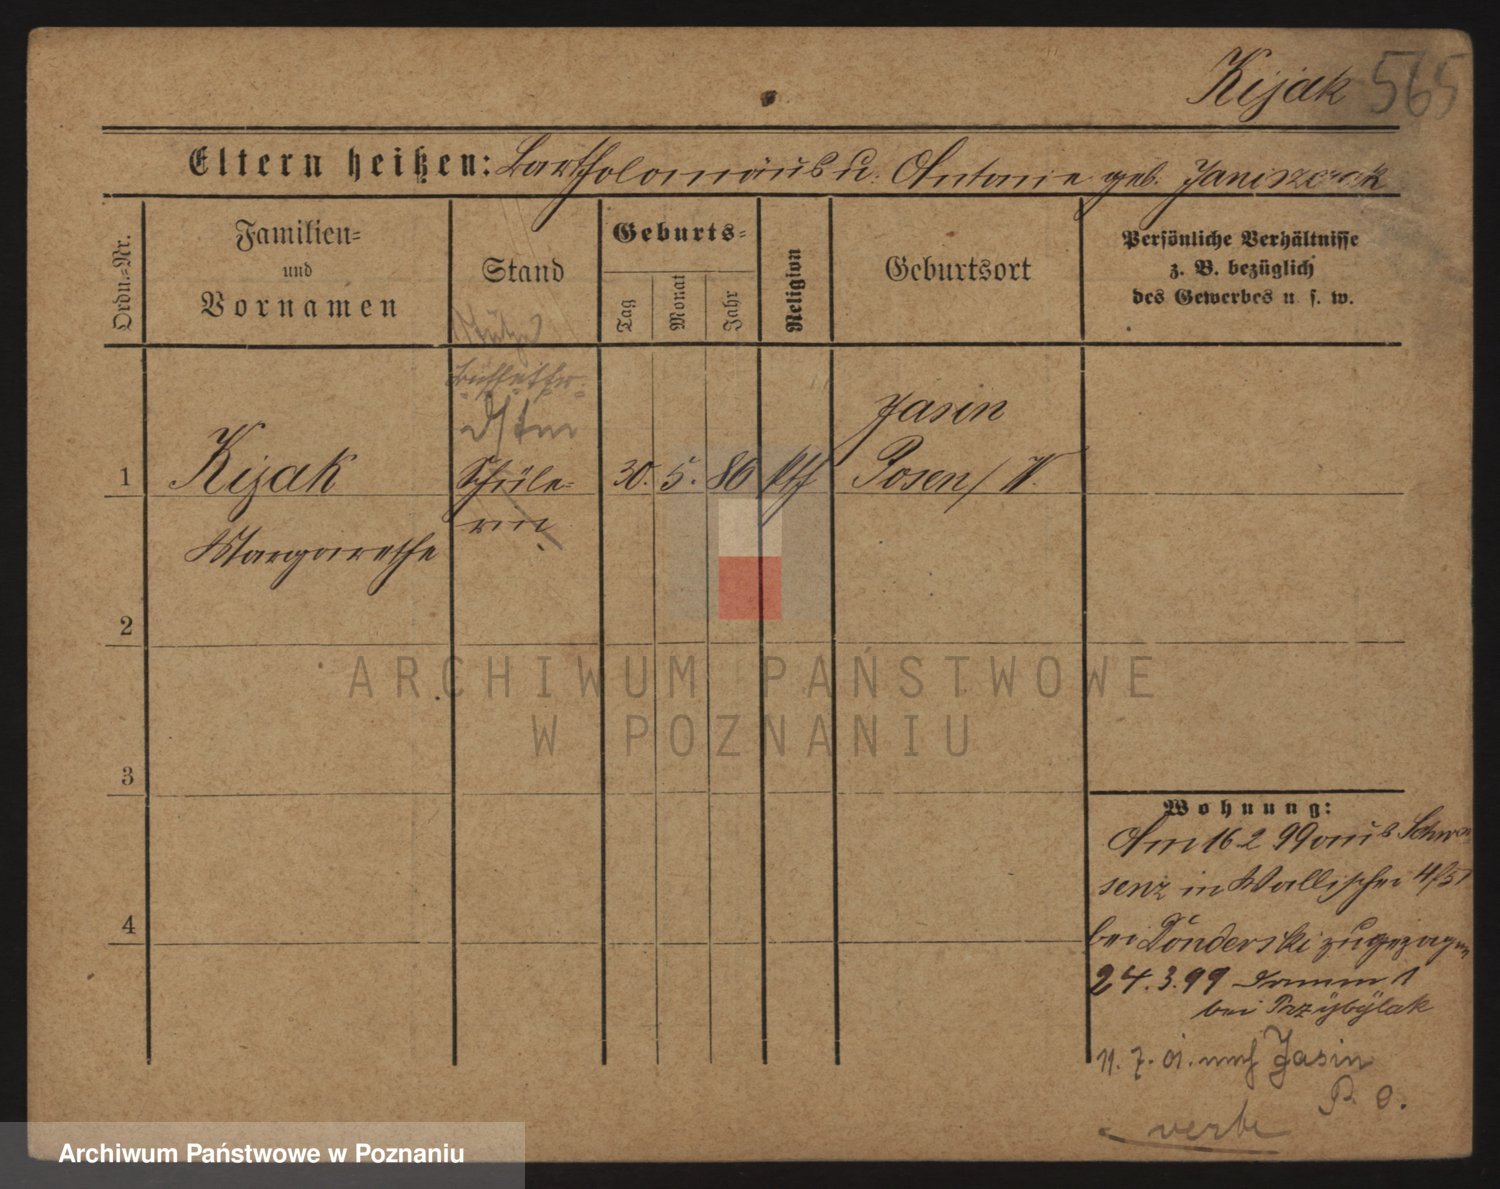 Kijak 565
Eltern heißen: Bartholomäus u. Antonie geb. Janiszczak
Ordn.-Nr.
Familien-
und
Vornamen
Stand
Geburts-
Tag
Monat
Jahr
Religion
Geburtsort
Persönliche Verhältnisse
z. B. bezüglich
des Gewerbes u. s. w.
Stütze
1
Kijak
Schüle-
rin
30. 5. 86 kth
Jasin
Posen / W.
Margarethe
2
3
4
ARCHIWUM PAŃSTWOWE
W POZNANIU
Wohnung:
Am 16 2 99 aus Schwer-
senz in Wallischei 4/5
bei Donderski zugezogen
24.3.99 Damm 1
bei Przybylak
11. 7. 01. nach Jasin
P. O.
verte
Archiwum Państwowe w Poznaniu